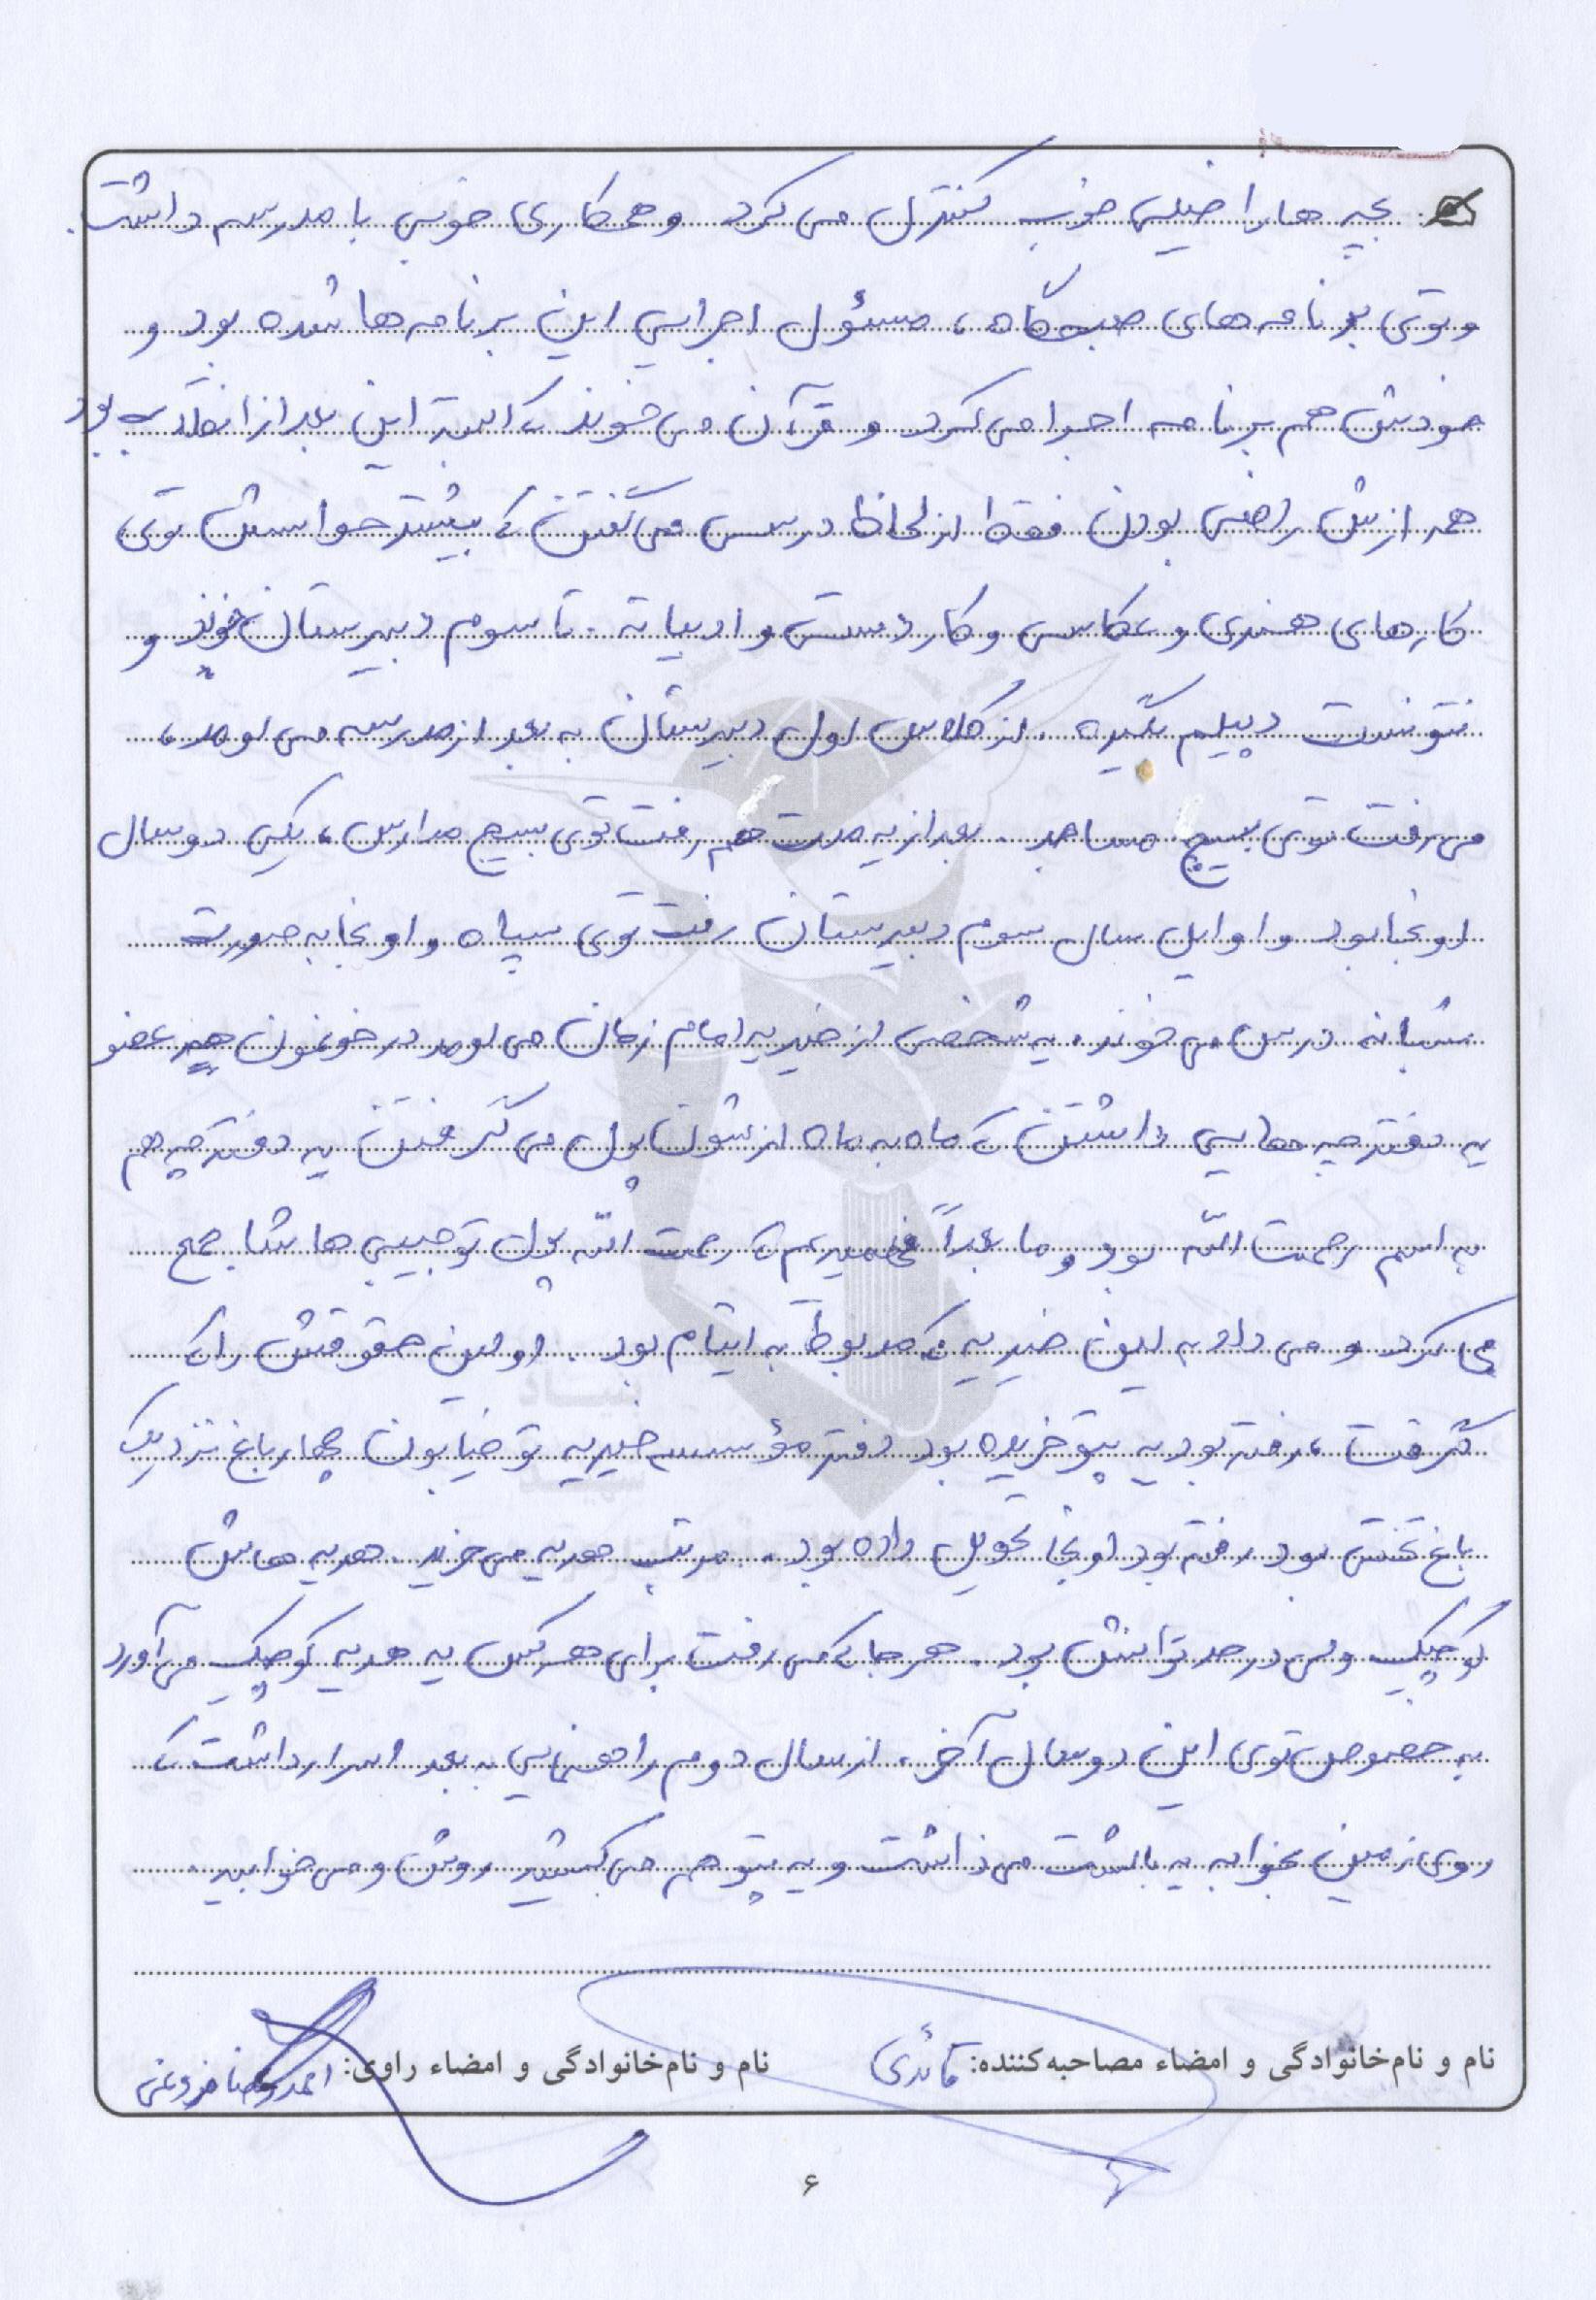 بچه ها را خیلی خوب کنترل می کرد و همکاری خوبی با مدرسه داشت.
و توی برنامه های صبحگاه، مسئول اجرایی این برنامه ها شده بود و
خودش هم برنامه اجرا می کرد و قرآن می خوند که البته این بعد از انقلاب بود
همه ازش راضی بودن فقط از لحاظ درسی می گفتن که بیشتر حواسش توی
کارهای هنری و عکاسی و کار دستی و ادبیاته. تا سوم دبیرستان خوند و
نتونست دیپلم بگیره. از کلاس اول دبیرستان به بعد از مدرسه می اومد،
می رفت توی بسیج مساجد. بعد از یه مدت هم رفت توی بسیج مدارس، یکی دو سال
اونجا بود و اوایل سال سوم دبیرستان رفت توی سپاه و اونجا به صورت
شبانه درس می خوند. یه شخصی از خیریه امام زمان می اومد در خونمون چند عضو
یه دفترچه هایی داشتن که ماه به ماه ازشون پول می گرفتن یه دفترچه هم
به اسم رحمت الله بود و ما بعداً فهمیدیم که رحمت الله پول توجیبی هاشا جمع
می کرد و می داد به این خیریه که مربوط به ایتام بود. اولین حقوقش را که
گرفت، رفته بود یه پتو خریده بود دفتر مؤسسه خیریه تو خیابون چهارباغ نزدیک
باغ تختی بود رفته بود اونجا تحویل داده بود. مرتب هدیه می خرید. هدیه هاش
کوچیک ولی در حد توانش بود. هر جا که می رفت برای هر کس یه هدیه کوچیک می آورد
به خصوص توی این دو سال آخر. از سال دوم راهنمایی به بعد اسرار داشت که
روی زمین بخوابه یه بالشت می ذاشت و یه پتو هم می کشید روش و می خوابید.
نام و نام‌خانوادگی و امضاء مصاحبه‌کننده: قائدی نام و نام‌خانوادگی و امضاء راوی:
۶